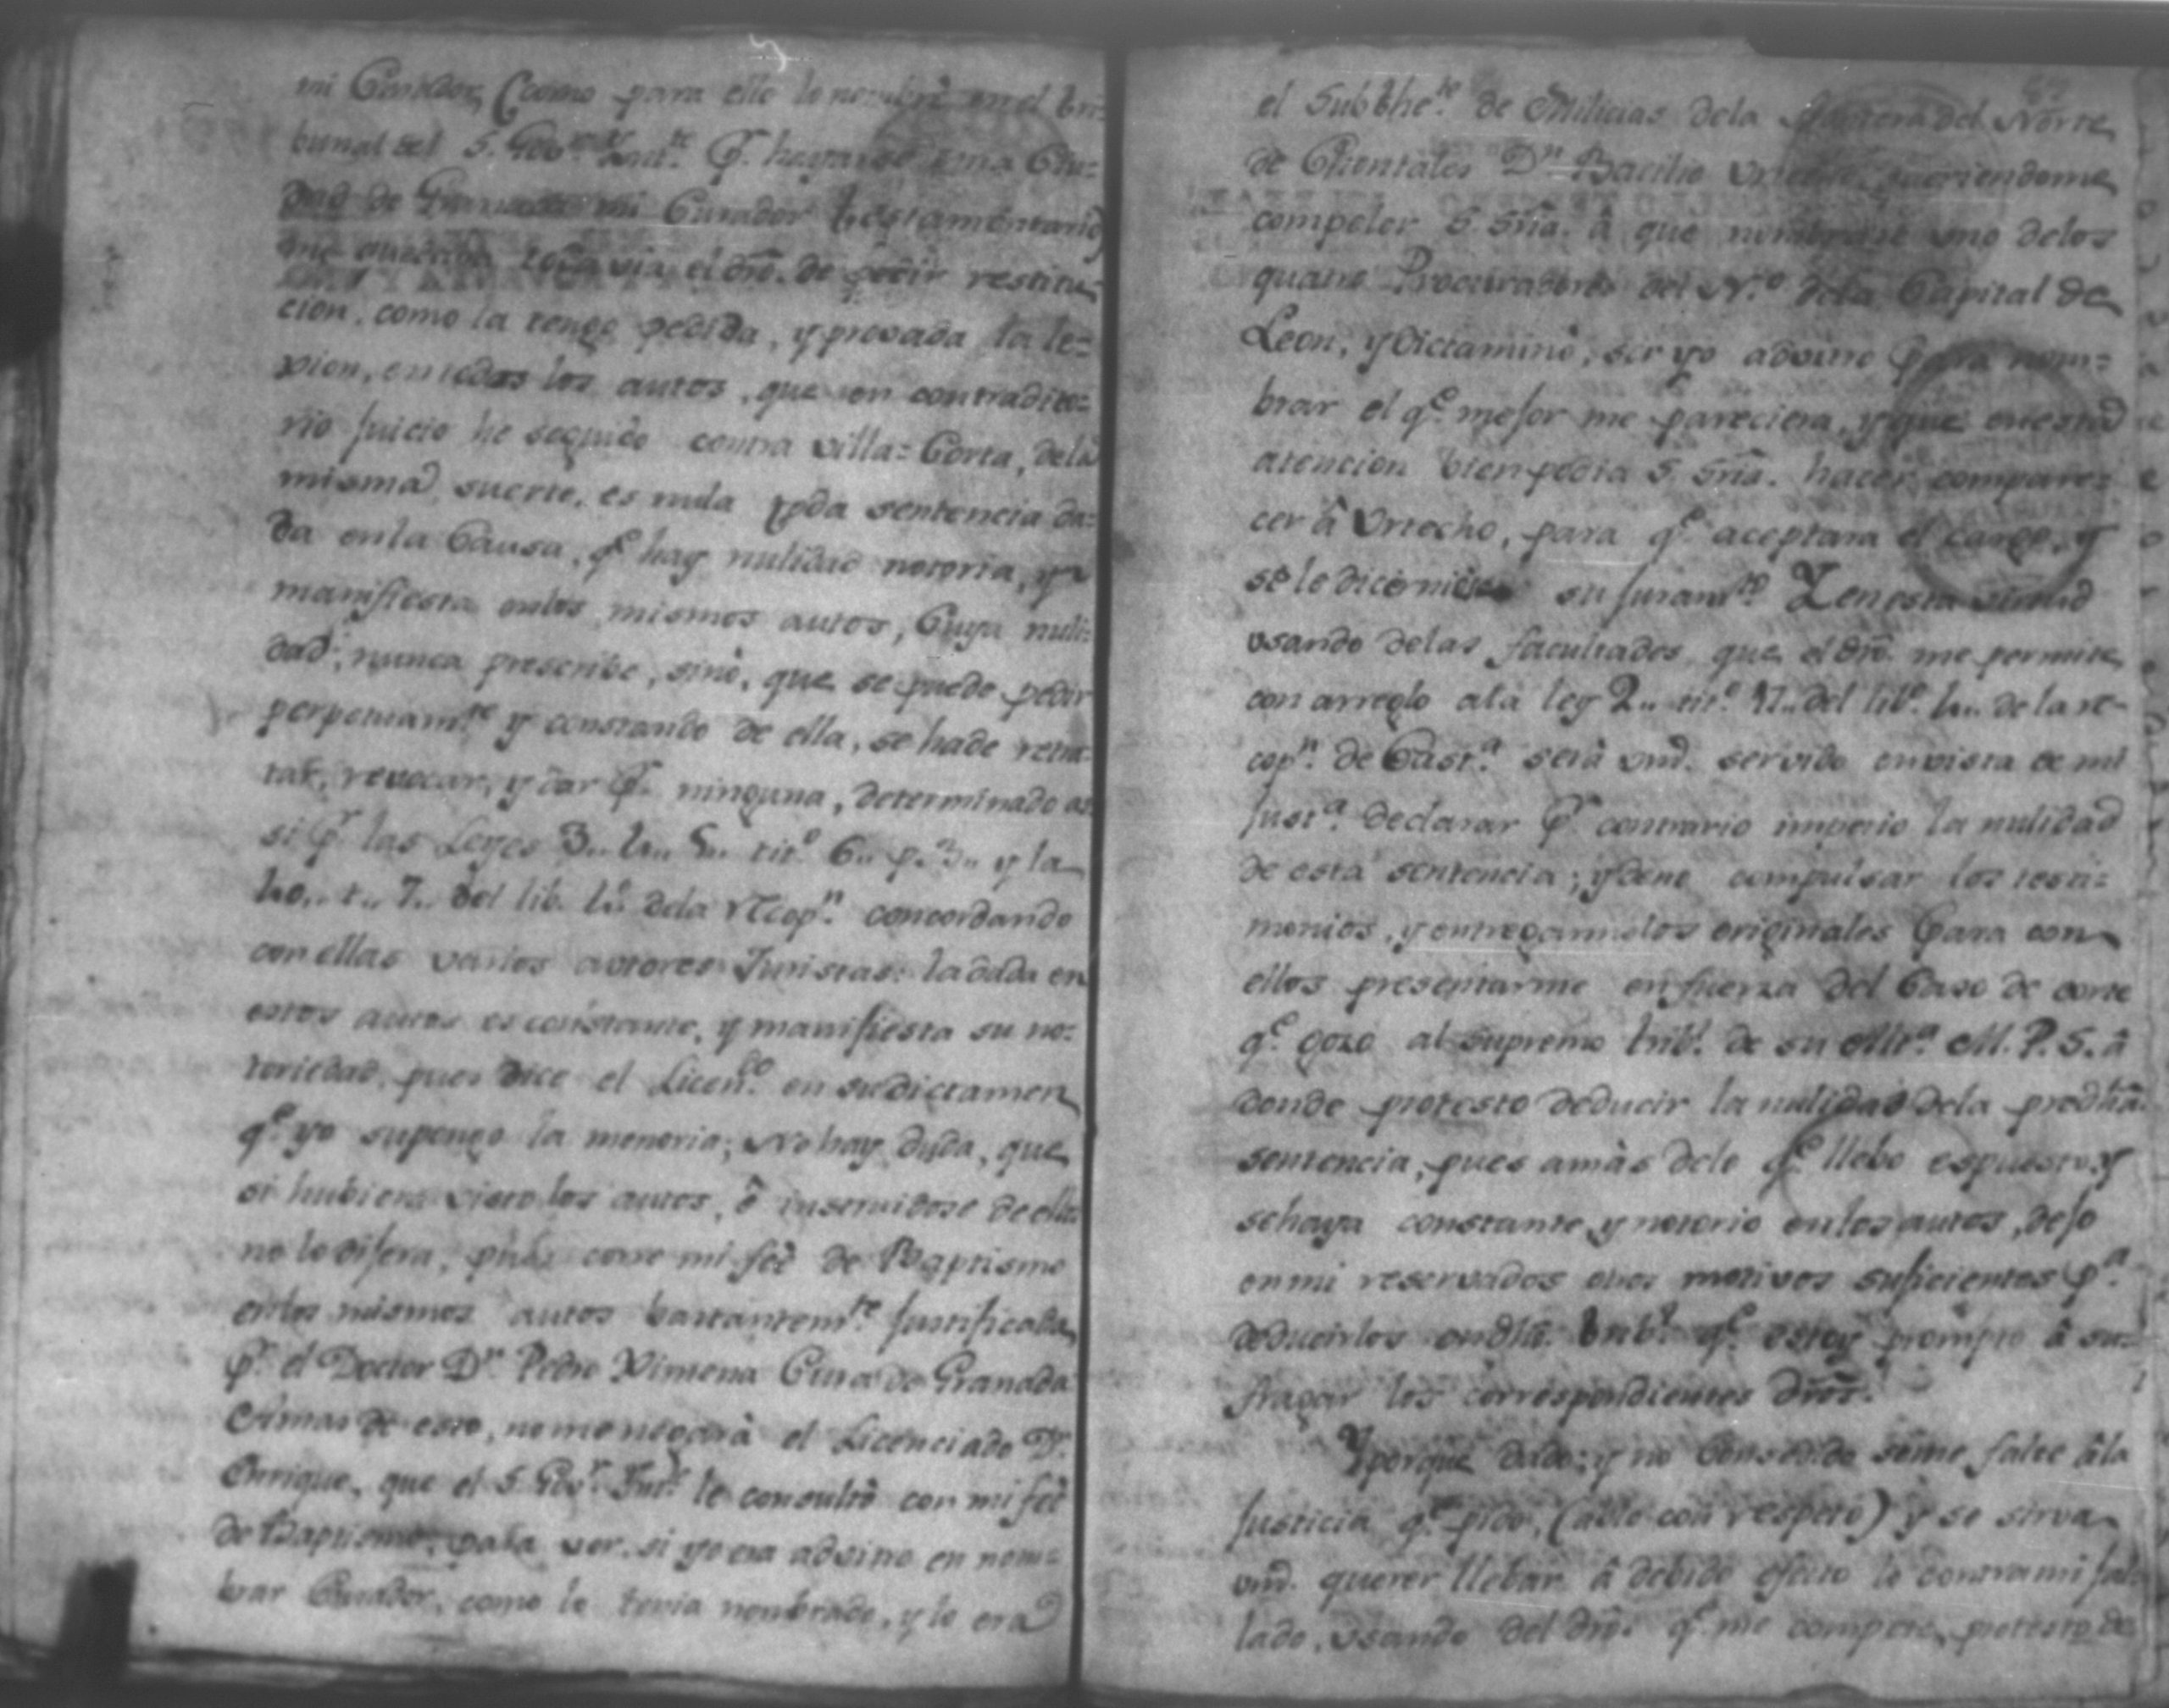 mi Curador, (como para ello lo nombré en el tri-
bunal del S. Gov.r Int.te P.r hayarse en la Ciu=
dad de Granada mi Curador testamentario)
me quedaba todavia el dr̃o. de pedir restitu-
cion, como la tengo pedida, y provada la le=
xion, en todos los autos, que en contradito=
rio juicio he seguido contra Villa=Corta, dela
misma suerte, es nula toda sentencia da=
da enla Causa, q.e hay nulidad notoria, y
manifiesta enlos mismos autos, Cuya nuli=
dad; nunca prescribe, sinó, que se puede pedir
perpetuam.te y constando de ella, se hade retra-
tar, revocar, y dar P.r ninguna, determinado as
si P.r las Leyes 3.. 4.. 5.. tit.o 6.. p. 3.. y la
40.. t.. 7.. del lib. 4.o dela rrecop.n concordando
con ellas varios autores Juristas: la dada en
estos autos es constante, y manifiesta su no=
toriedad, pues dice el Licen.do en su dictamen
q.e yo supongo la menoria; No hay duda, que
si hubiera visto los autos, ó instruidose de ellos
no lo dijera, pues corre mi feé de Baptismo
enlos mismos autos bastantem.te justificada
P.r el Doctor D.n Pedro Ximena Cura de Granada
Enmas de esto, no me negará el Licenciado D.n
Enrique, que el S. Gov.r Int.e le consultó con mi feé
de Baptismo, para ver, si yo era advino en nom=
brar Curador, como le tenia nombrado, y lo era
el Subthe.te de Milicias dela Frontera del Norte
de Chontales D.n Bacilio Vrtecho, queriendome
compeler S. Sria. á que nombrase uno delos
quatro Procuradores del N.o dela Capital de
Leon, y dictaminó, ser yo advino para nom=
brar el q.e mejor me pareciera, y que en esta
atencion bien podia S. Sria. hacer compare=
cer á Vrtecho, para q.e aceptara el cargo, y
se le dicerniese su juram.to Y en esta virtud
usando delas facultades que el dr̃o. me permite
con arreglo ala ley 2.. tit.o 17.. del lib.o 4.. de la re-
cop.n de Cast.a será vmd. servido en vista de mi
just.a declarar P.r contrario imperio la nulidad
de esta sentencia; y deve compulsar los testi=
monios, y entregarmelos originales Para con
ellos presentarme en fuerza del Caso de corte
q.e gozo al supremo trib.l de su Alt.a M. P. S. á
donde protesto deducir la nulidad dela predha.
sentencia, pues amás delo q.e llebo espuesto, y
se haya constante, y notorio enlos autos, dejo
en mi reservados otros motivos suficientes P.a
deducirlos en dho. trib.l q.e estoy prompto á su-
fragar los correspondientes dros.
Y porque dado; y no Consedido seme falte ála
Justicia q.e pido, (ablo con respeto) y se sirva
vmd. querer llebar á debido efecto lo contra mi fal-
lado, usando del dr̃o. q.e me compete, protesto de